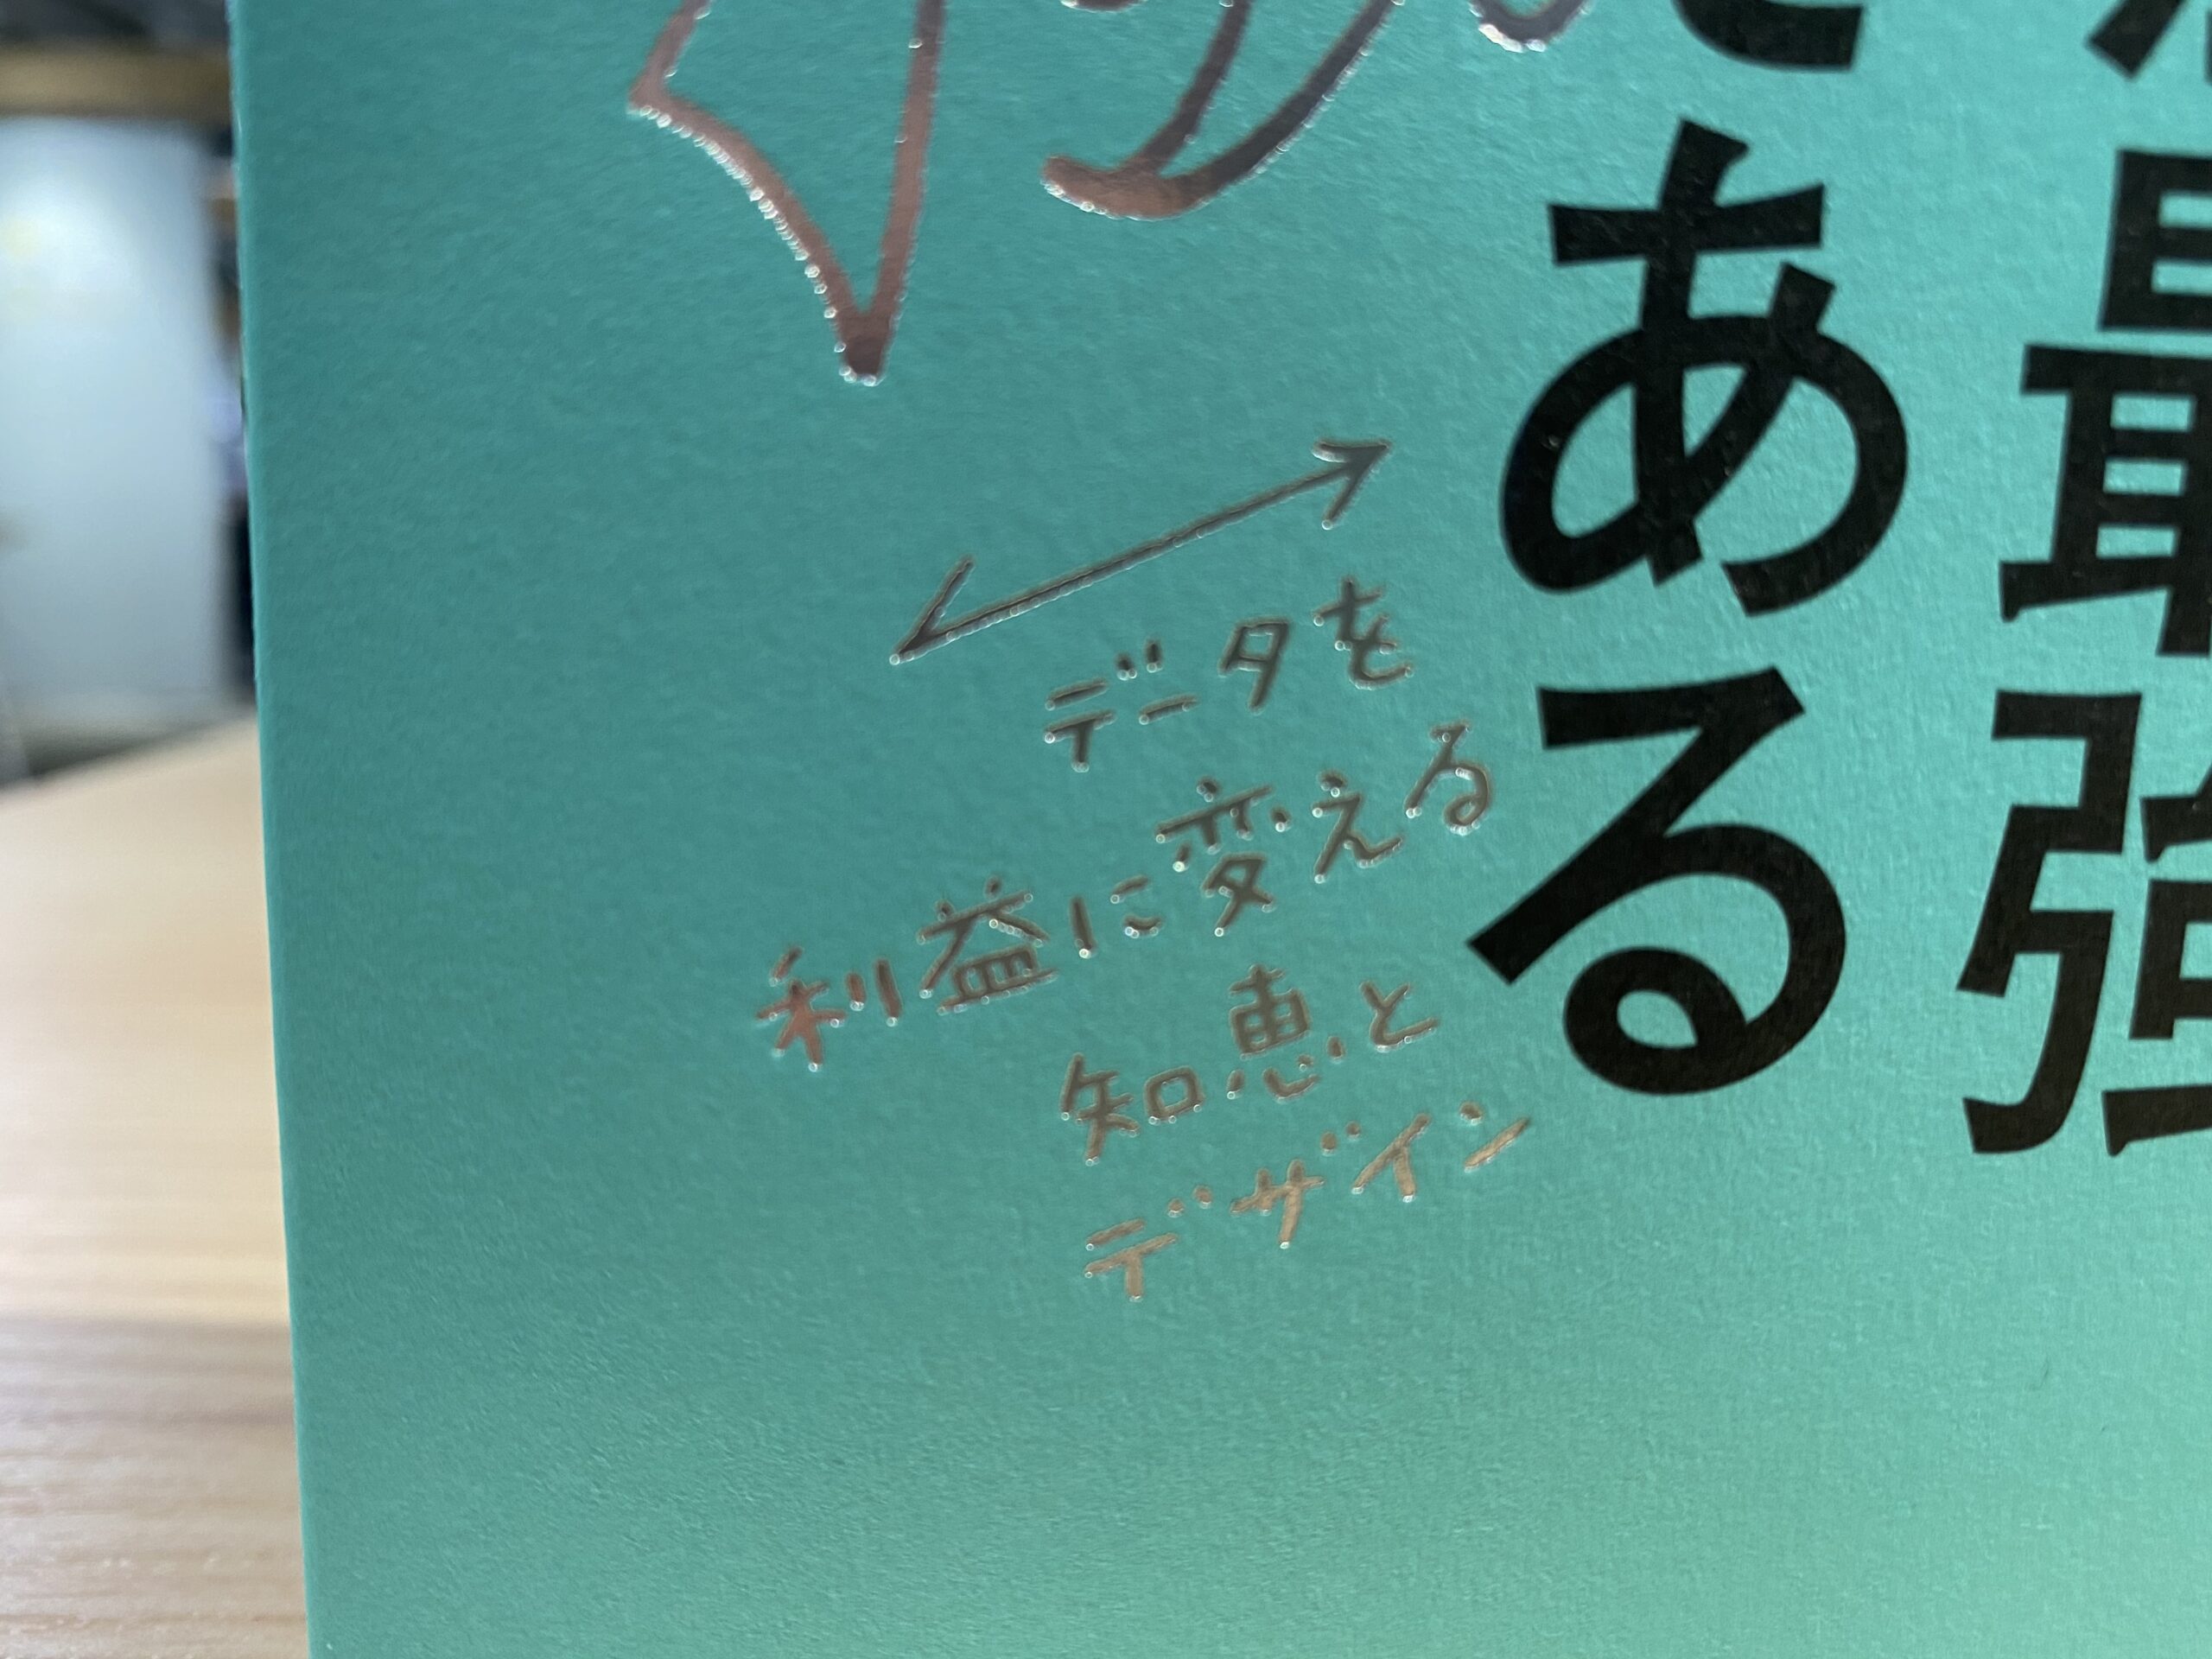 最強
ある
データを
利益に変える
知恵と
デザイン